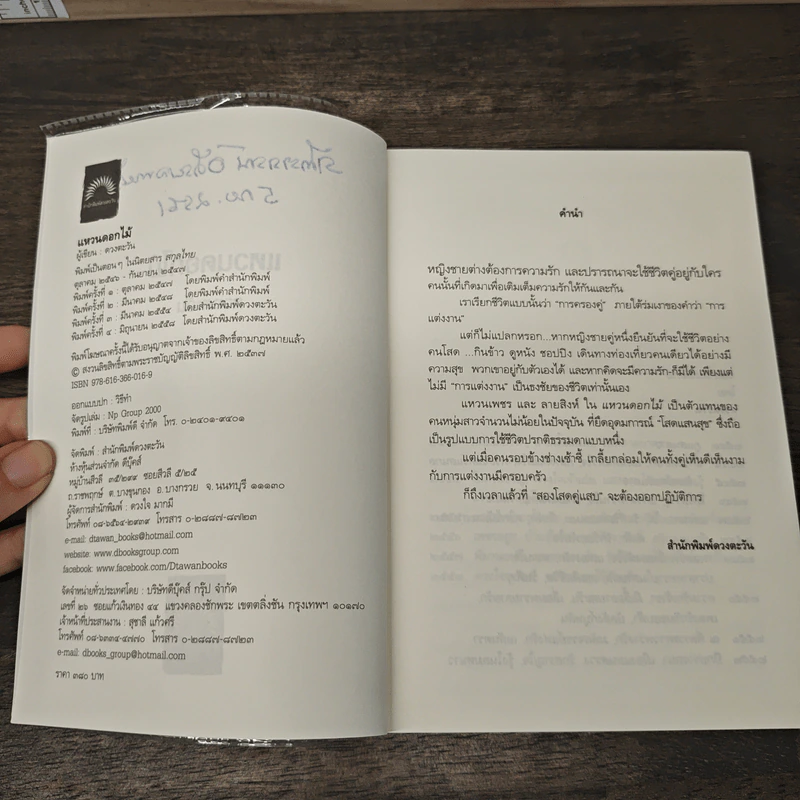 แหวนดอกไม้
ผู้เขียน : ดวงตะวัน
พิมพ์เป็นตอนๆ ในนิตยสาร สกุลไทย
ตุลาคม ๒๕๔๖ - กันยายน ๒๕๔๗
พิมพ์ครั้งที่ ๑ : ตุลาคม ๒๕๔๗ โดยพิมพ์คำสำนักพิมพ์
พิมพ์ครั้งที่ ๒ : มีนาคม ๒๕๔๘ โดยพิมพ์คำสำนักพิมพ์
พิมพ์ครั้งที่ ๓ : มีนาคม ๒๕๕๔ โดยสำนักพิมพ์ดวงตะวัน
พิมพ์ครั้งที่ ๔ : มิถุนายน ๒๕๕๘ โดยสำนักพิมพ์ดวงตะวัน
พิมพ์โฆษณาครั้งนี้ได้รับอนุญาตจากเจ้าของลิขสิทธิ์ตามกฎหมายแล้ว
© สงวนลิขสิทธิ์ตามพระราชบัญญัติลิขสิทธิ์ พ.ศ. ๒๕๓๗
ISBN 978-616-366-016-9
ออกแบบปก : วิธีทำ
จัดรูปเล่ม : Np Group 2000
พิมพ์ที่ : บริษัทพิมพ์ดี จำกัด โทร. ๐-๒๔๐๑-๙๔๐๑
จัดพิมพ์ : สำนักพิมพ์ดวงตะวัน
ห้างหุ้นส่วนจำกัด ดีบุ๊คส์
หมู่บ้านสีวลี ๓๕/๒๙๙ ซอยสีวลี ๕/๒๕
ถ.ราชพฤกษ์ ต.บางขุนกอง อ.บางกรวย จ.นนทบุรี ๑๑๑๓๐
ผู้จัดการสำนักพิมพ์ : ดวงใจ มากมี
โทรศัพท์ ๐๘-๖๕๐๔-๒๙๓๙ โทรสาร ๐-๒๘๘๗-๘๗๒๓
e-mail: dtawan_books@hotmail.com
website: www.dbooksgroup.com
facebook: www.facebook.com/Dtawanbooks
จัดจำหน่ายทั่วประเทศโดย : บริษัทดีบุ๊คส์ กรุ๊ป จำกัด
เลขที่ ๒๖ ซอยแก้วเงินทอง ๔๔ แขวงคลองชักพระ เขตตลิ่งชัน กรุงเทพฯ ๑๐๑๗๐
เจ้าหน้าที่ประสานงาน : สุชาลี แก้วศรี
โทรศัพท์ ๐๘-๖๓๓๔-๔๗๗๐ โทรสาร ๐-๒๘๘๗-๘๗๒๓
e-mail: dbooks_group@hotmail.com
ราคา ๓๘๐ บาท
คำนำ
หญิงชายต่างต้องการความรัก และปรารถนาจะใช้ชีวิตคู่อยู่กับใคร
คนนั้นที่เกิดมาเพื่อเติมเต็มความรักให้กันและกัน
เราเรียกชีวิตแบบนั้นว่า “การครองคู่” ภายใต้ร่มเงาของคำว่า “การ
แต่งงาน”
แต่ก็ไม่แปลกหรอก...หากหญิงชายคู่หนึ่งยืนยันที่จะใช้ชีวิตอย่าง
คนโสด ...กินข้าว ดูหนัง ชอปปิง เดินทางท่องเที่ยวคนเดียวได้อย่างมี
ความสุข พวกเขาอยู่กับตัวเองได้ และหากคิดจะมีความรัก-ก็มีได้ เพียงแต่
ไม่มี “การแต่งงาน” เป็นธงชัยของชีวิตเท่านั้นเอง
แหวนเพชร และ ลายสิงห์ ใน แหวนดอกไม้ เป็นตัวแทนของ
คนหนุ่มสาวจำนวนไม่น้อยในปัจจุบัน ที่ยึดอุดมการณ์ “โสดแสนสุข” ซึ่งถือ
เป็นรูปแบบการใช้ชีวิตปรกติธรรมดาแบบหนึ่ง
แต่เมื่อคนรอบข้างช่างเซ้าซี้ เกลี้ยกล่อมให้คนทั้งคู่เห็นดีเห็นงาม
กับการแต่งงานมีครอบครัว
ก็ถึงเวลาแล้วที่ “สองโสดคู่แสบ” จะต้องออกปฏิบัติการ
สำนักพิมพ์ดวงตะวัน